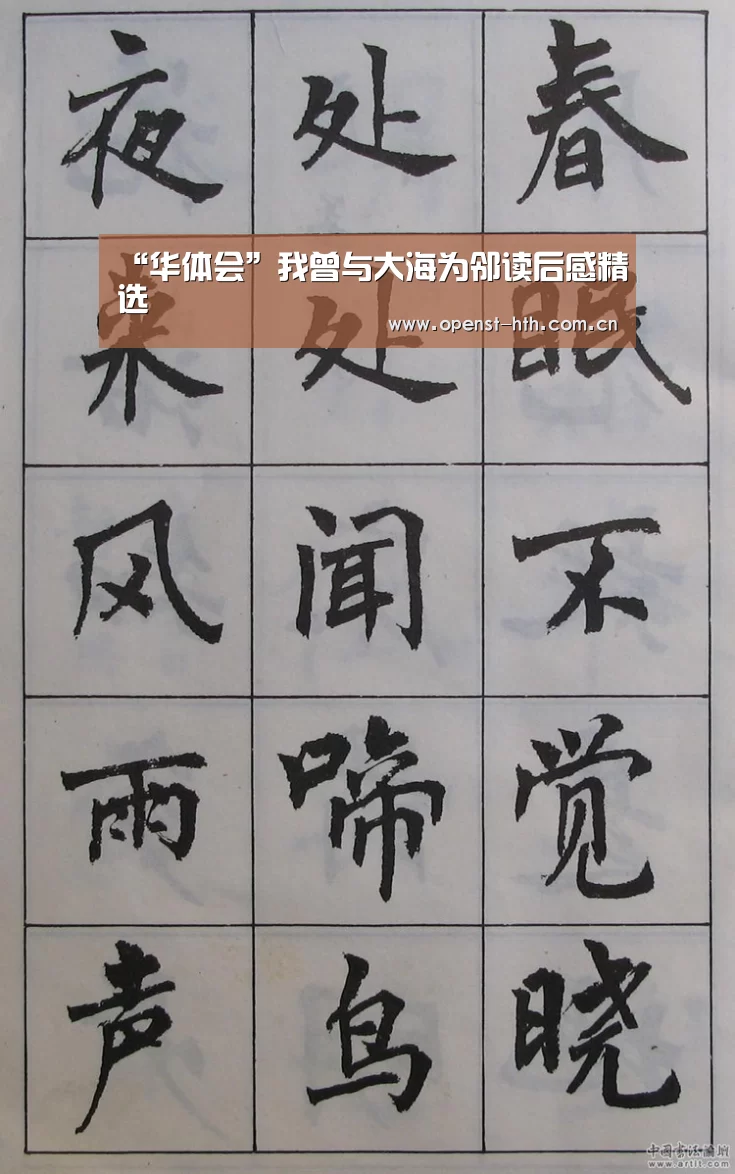 春眠不觉晓
处处闻啼鸟
夜来风雨声
“华体会”我曾与大海为邻读后感精
选
www.openst-hth.com.cn
中国书法论坛
www.artit.com